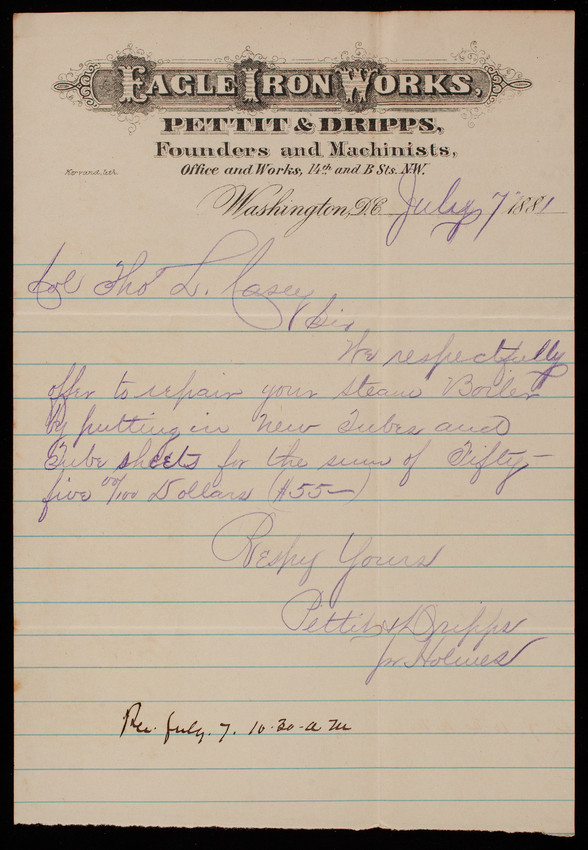 EAGLE IRON WORKS,
PETTIT & DRIPPS,
Founders and Machinists,
Office and Works, 14th and B Sts. N.W.
Washington, D.C. July 7" 1881
Col Tho' L. Casey
Sir
We respectfully
offer to repair your steam Boiler
by putting in new Tubes and
Tube sheets for the sum of Fifty-
five 00/100 Dollars ($55—)
Respy Yours
Pettit & Dripps
Holmes
Rec. July. 7. 10.30 - a m